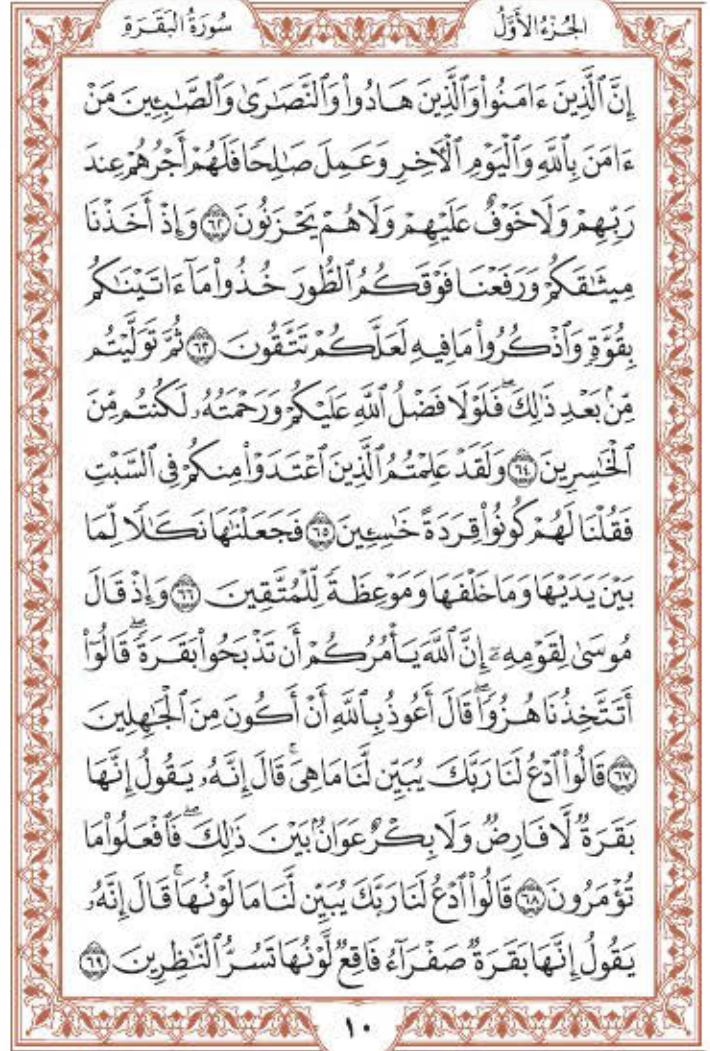 الجُزْءُ الأَوَّلُ
سُورَةُ الْبَقَرَةِ
إِنَّ ٱلَّذِينَ ءَامَنُوا۟ وَٱلَّذِينَ هَادُوا۟ وَٱلنَّصَـٰرَىٰ وَٱلصَّـٰبِـِٔينَ مَنْ
ءَامَنَ بِٱللَّهِ وَٱلْيَوْمِ ٱلْـَٔاخِرِ وَعَمِلَ صَـٰلِحًا فَلَهُمْ أَجْرُهُمْ عِندَ
رَبِّهِمْ وَلَا خَوْفٌ عَلَيْهِمْ وَلَا هُمْ يَحْزَنُونَ ٦٢ وَإِذْ أَخَذْنَا
مِيثَـٰقَكُمْ وَرَفَعْنَا فَوْقَكُمُ ٱلطُّورَ خُذُوا۟ مَآ ءَاتَيْنَـٰكُم
بِقُوَّةٍ وَٱذْكُرُوا۟ مَا فِيهِ لَعَلَّكُمْ تَتَّقُونَ ٦٣ ثُمَّ تَوَلَّيْتُم
مِّنۢ بَعْدِ ذَٰلِكَ ۖ فَلَوْلَا فَضْلُ ٱللَّهِ عَلَيْكُمْ وَرَحْمَتُهُۥ لَكُنتُم مِّنَ
ٱلْخَـٰسِرِينَ ٦٤ وَلَقَدْ عَلِمْتُمُ ٱلَّذِينَ ٱعْتَدَوْا۟ مِنكُمْ فِى ٱلسَّبْتِ
فَقُلْنَا لَهُمْ كُونُوا۟ قِرَدَةً خَـٰسِـِٔينَ ٦٥ فَجَعَلْنَـٰهَا نَكَـٰلًا لِّمَا
بَيْنَ يَدَيْهَا وَمَا خَلْفَهَا وَمَوْعِظَةً لِّلْمُتَّقِينَ ٦٦ وَإِذْ قَالَ
مُوسَىٰ لِقَوْمِهِۦٓ إِنَّ ٱللَّهَ يَأْمُرُكُمْ أَن تَذْبَحُوا۟ بَقَرَةً ۖ قَالُوٓا۟
أَتَتَّخِذُنَا هُزُوًا ۖ قَالَ أَعُوذُ بِٱللَّهِ أَنْ أَكُونَ مِنَ ٱلْجَـٰهِلِينَ
٦٧ قَالُوا۟ ٱدْعُ لَنَا رَبَّكَ يُبَيِّن لَّنَا مَا هِىَ ۚ قَالَ إِنَّهُۥ يَقُولُ إِنَّهَا
بَقَرَةٌ لَّا فَارِضٌ وَلَا بِكْرٌ عَوَانٌۢ بَيْنَ ذَٰلِكَ ۖ فَٱفْعَلُوا۟ مَا
تُؤْمَرُونَ ٦٨ قَالُوا۟ ٱدْعُ لَنَا رَبَّكَ يُبَيِّن لَّنَا مَا لَوْنُهَا ۚ قَالَ إِنَّهُۥ
يَقُولُ إِنَّهَا بَقَرَةٌ صَفْرَآءُ فَاقِعٌ لَّوْنُهَا تَسُرُّ ٱلنَّـٰظِرِينَ ٦٩
١٠